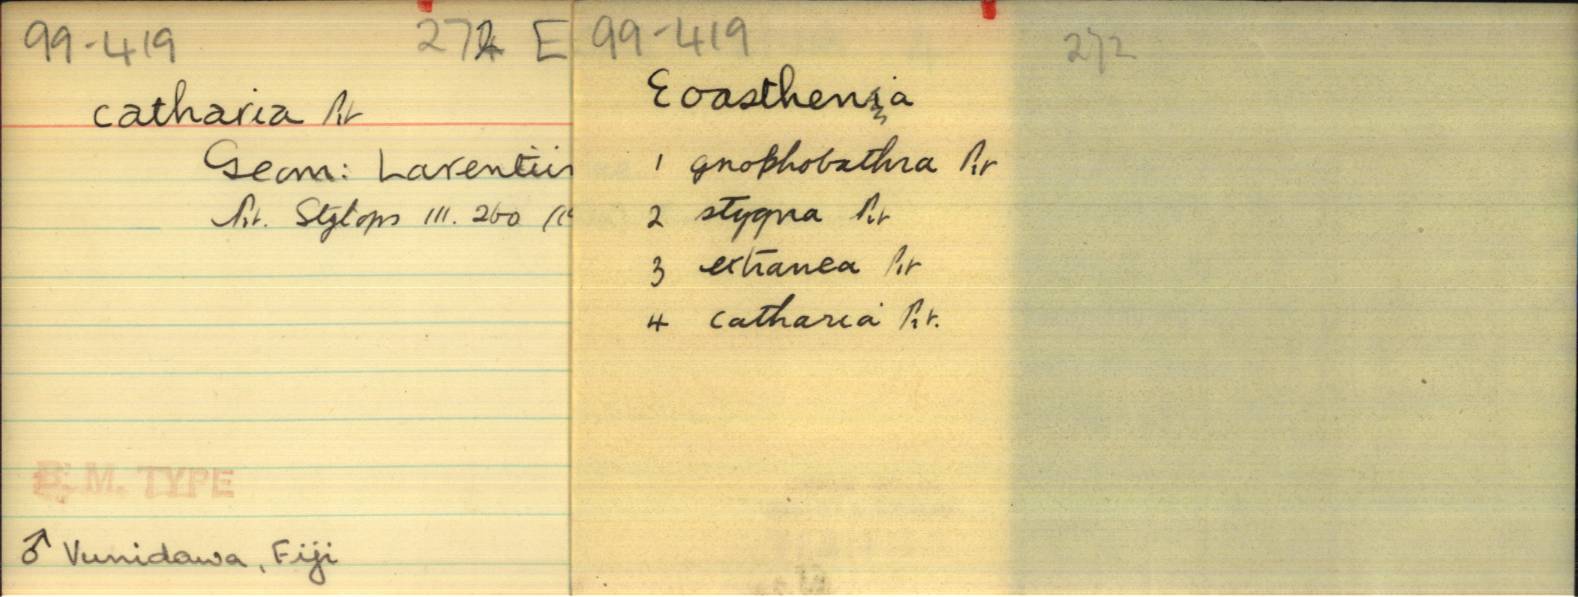 99-419 272 E
catharia Pr
Geom: Larentiin
Pr. Stylops III. 260
B.M. TYPE
♂ Vunidawa, Fiji
99-419
Eoasthenia
1 gnophobathra Pr
2 stygna Pr
3 extranea Pr
4 catharia Pr.
272